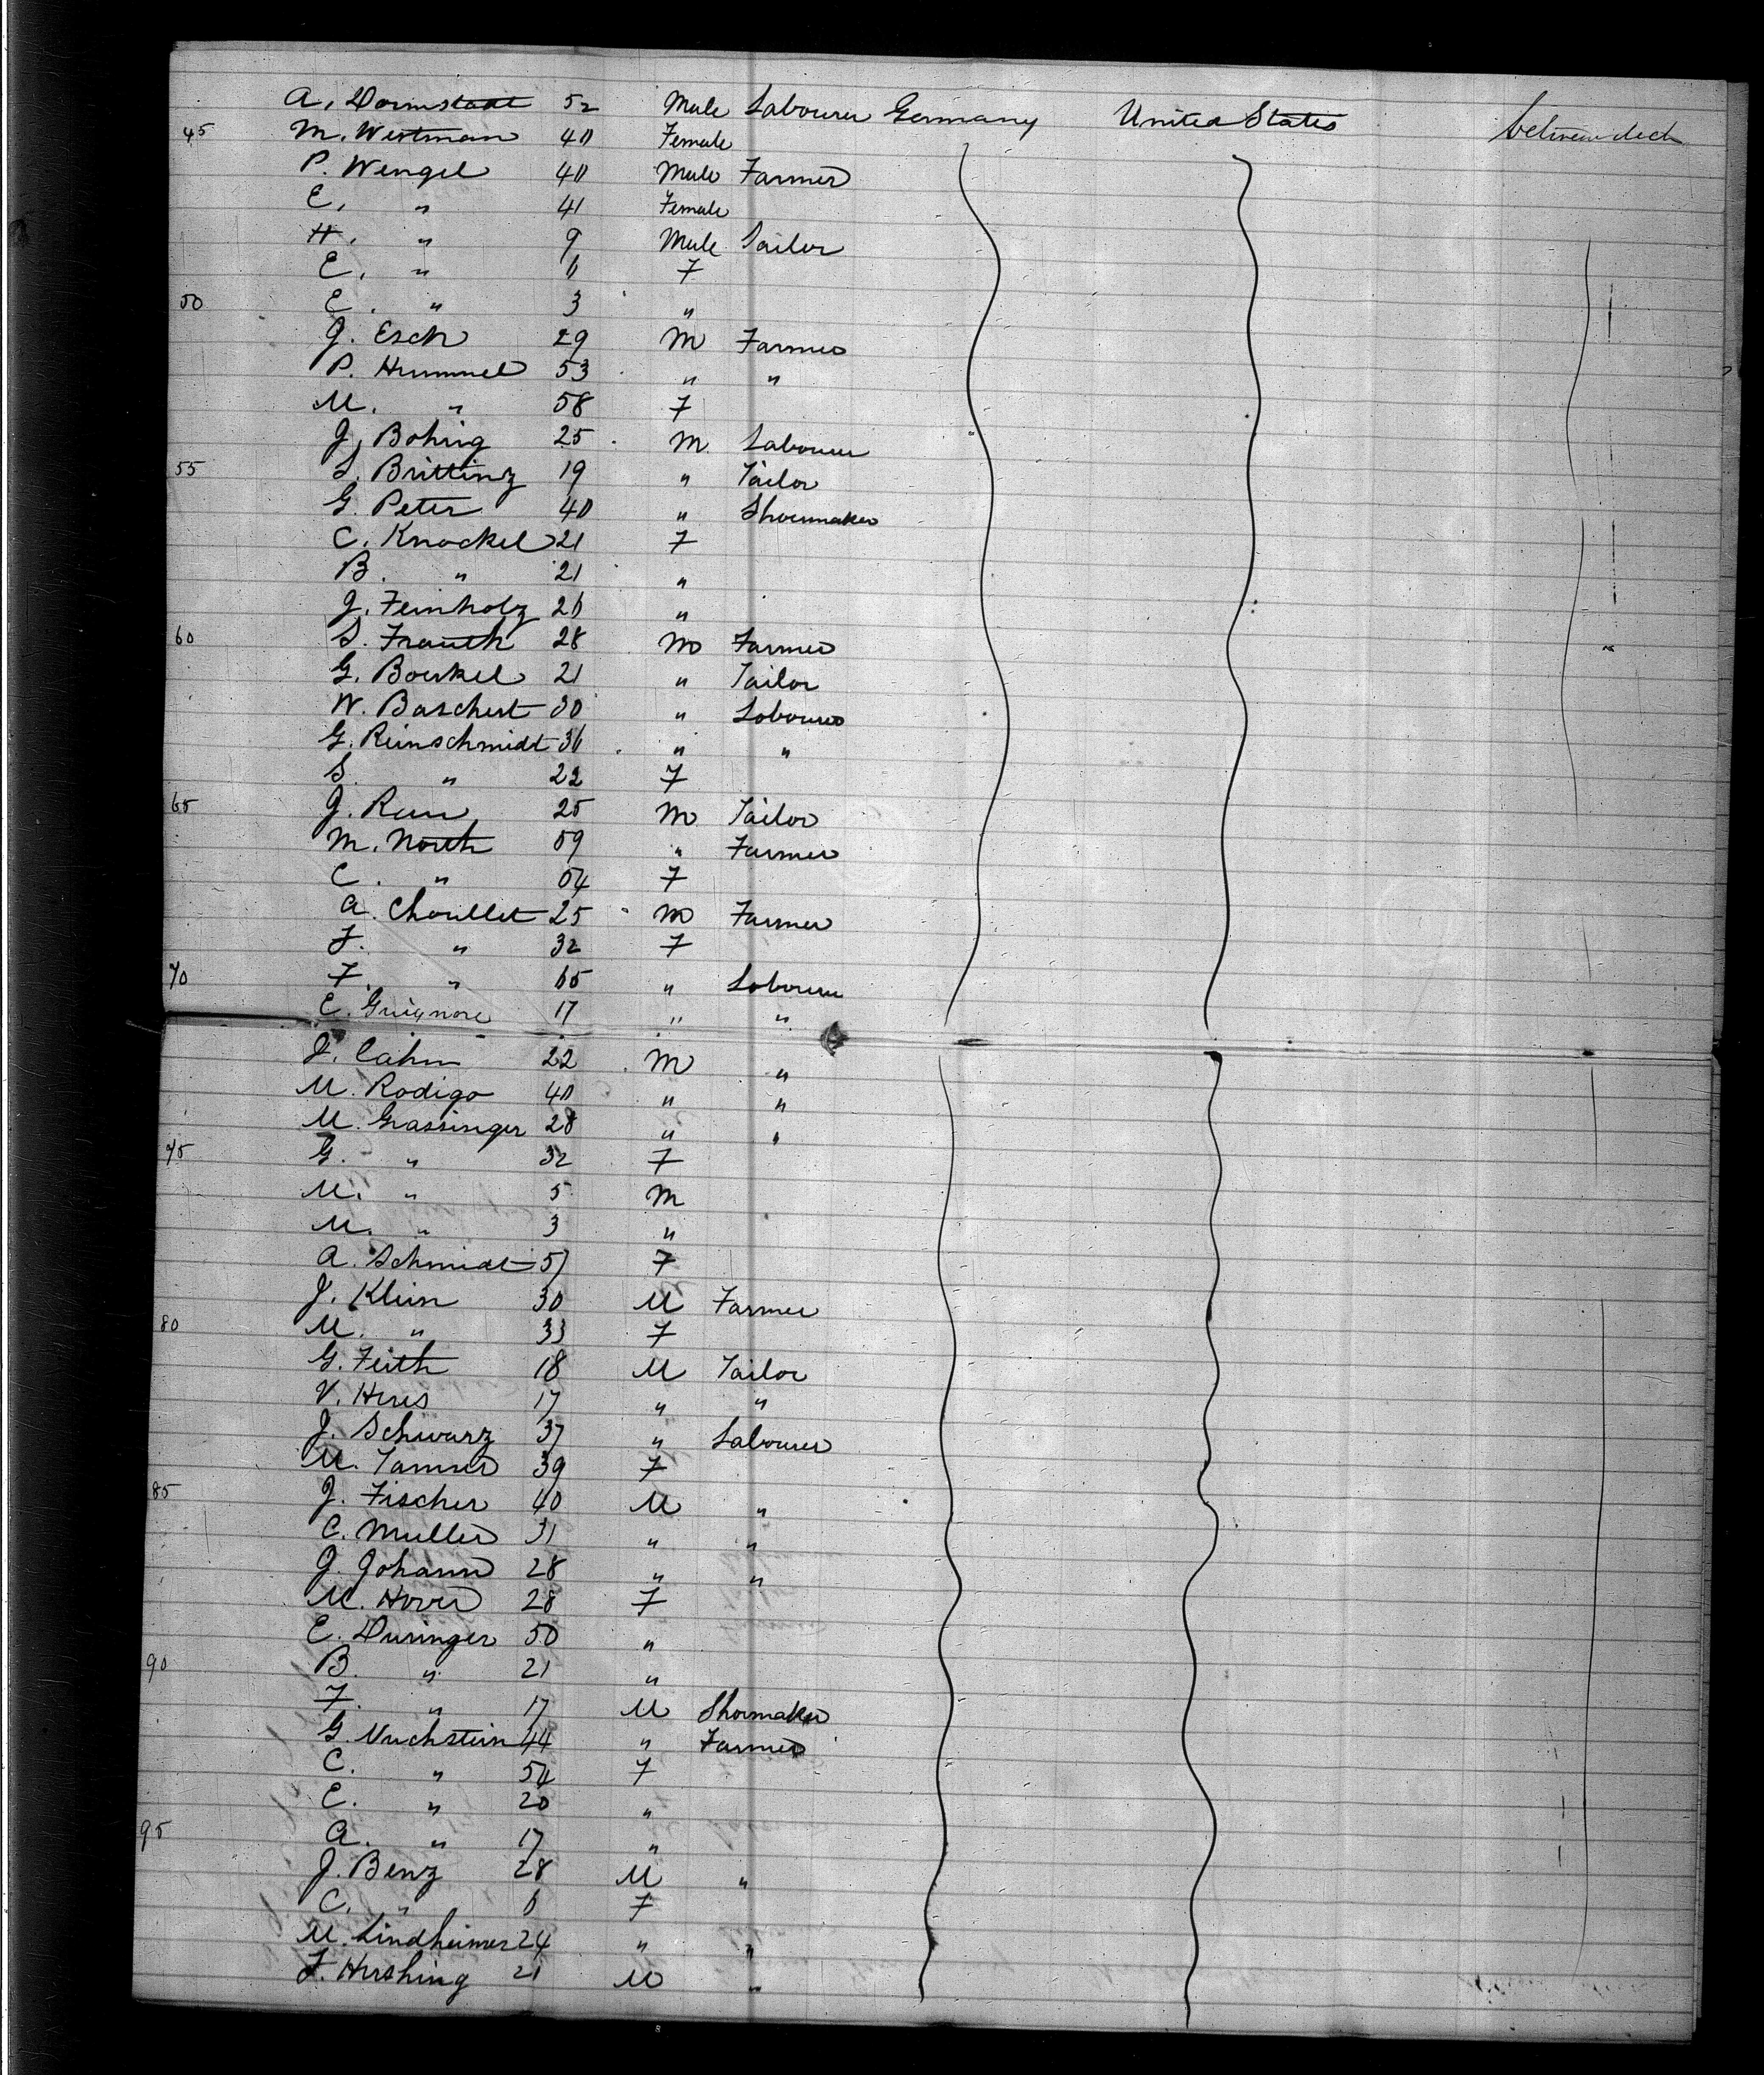 A. Darmstadt 52 Male Labourer Germany United States between deck
45 M. Westman 40 Female
P. Wengel 40 Male Farmer
E. " 41 Female
H. " 9 Male Tailor
E. " 6 F
50 E. " 3 "
J. Esch 29 M Farmer
P. Hummel 53 " "
M. " 58 F
J. Bohrig 25 M Labourer
55 S. Brittinz 19 " Tailor
G. Peter 40 " Shoemaker
C. Knockel 21 F
B. " 21 "
J. Feinholz 26 "
60 S. Frauth 28 M Farmer
G. Boerkel 21 " Tailor
W. Baschert 30 " Labourer
G. Reinschmidt 36 " "
S. " 22 F
65 J. Raur 25 M Tailor
M. North 59 " Farmer
C. " 54 F
A. Choullet 25 M Farmer
F. " 32 F
70 F. " 65 " Labourer
E. Guignore 17 " "
J. Cahn 22 M "
M. Rodigo 40 " "
M. Grassinger 28 " "
75 G. " 32 F
M. " 5 M
M. " 3 "
A. Schmidt 57 F
J. Klein 30 M Farmer
80 M. " 33 F
G. Feith 18 M Tailor
V. Heres 17 " "
J. Schwarz 37 " Labourer
M. Tanner 39 F
85 J. Fischer 40 M "
C. Muller 31 " "
J. Johann 28 " "
M. Hover 28 F
E. Duringer 50 "
90 B. " 21 "
F. " 17 M Shoemaker
G. Muchstein 44 " Farmer
C. " 54 F
E. " 20 "
95 A. " 17 "
J. Benz 28 M "
C. " 6 F
M. Lindheimer 24 " "
F. Hershing 21 M "